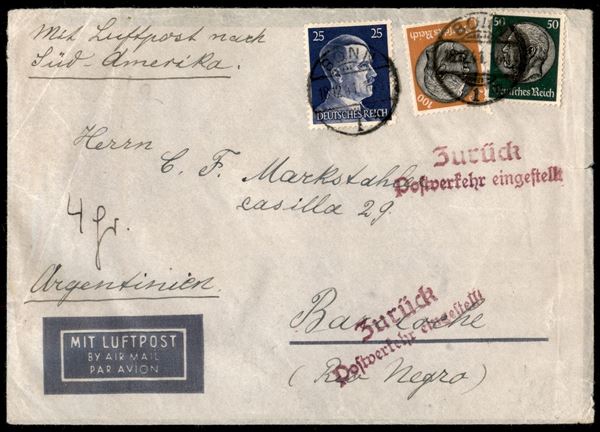 Mit Luftpost nach
Süd-Amerika.
25 25
DEUTSCHES REICH
BONN
1
100
Deutsches Reich
50 50
Deutsches Reich
BONN
1
Herrn
C. F. Markstahler
casilla 29.
Zurück
Postverkehr eingestellt
4 gr.
Argentinien.
Bariloche
(Rio Negro)
Zurück
Postverkehr eingestellt
MIT LUFTPOST
BY AIR MAIL
PAR AVION